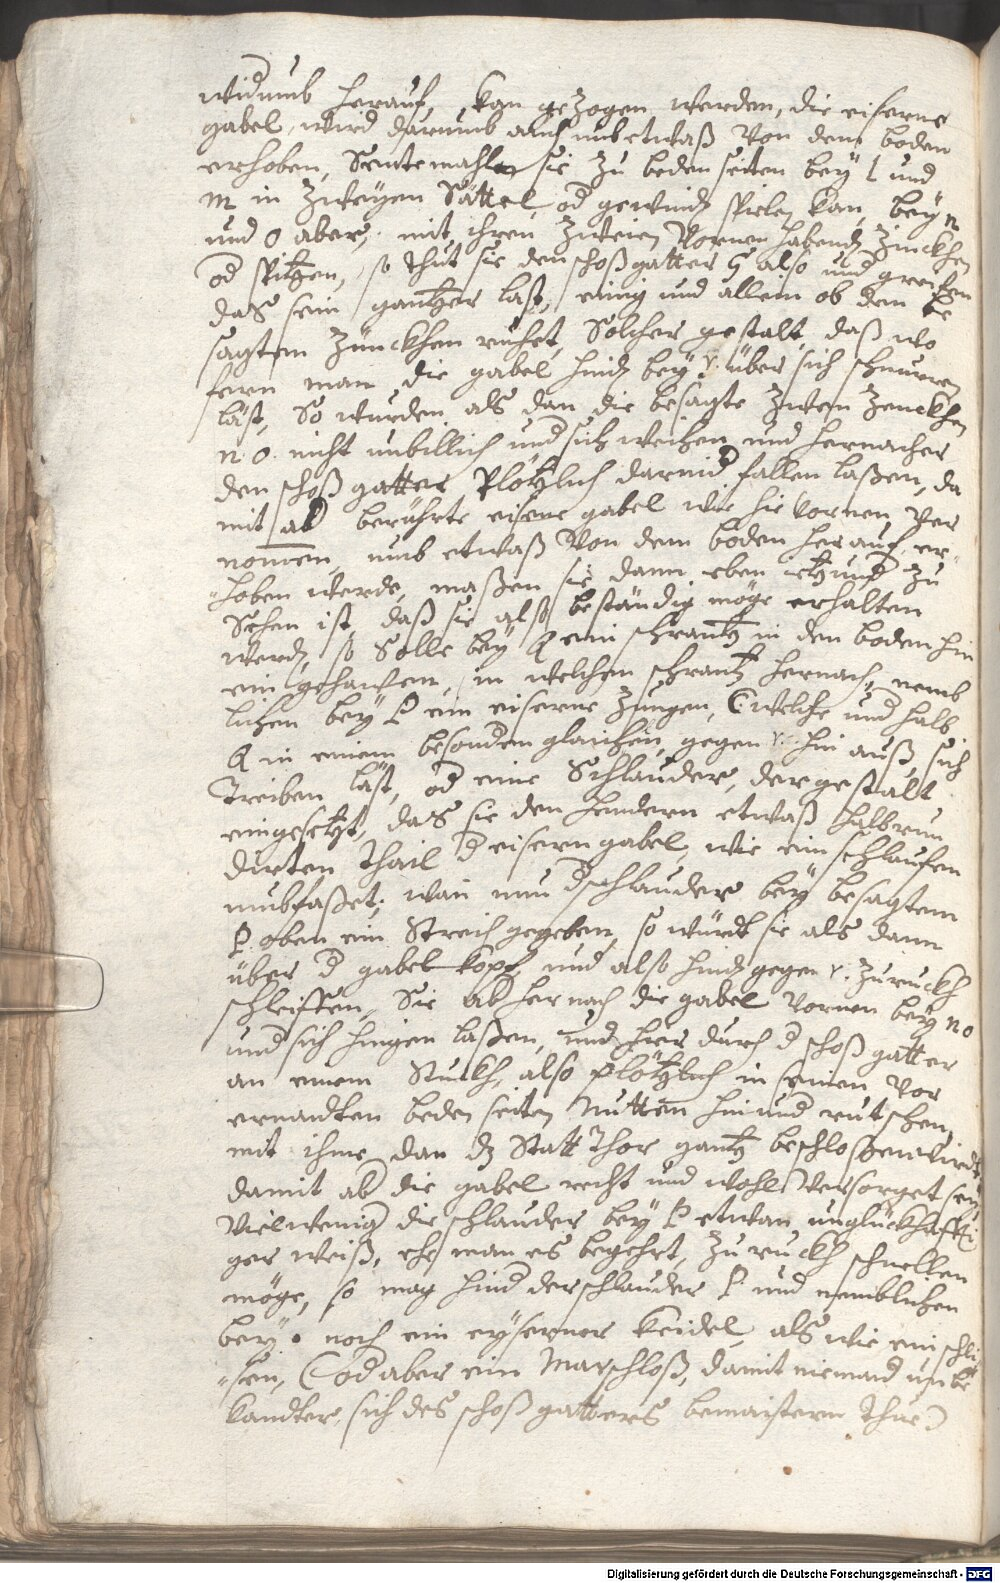 widumb herauf, kan gezogen werden, die eiserne
gabel, wird darumb auch umb etwaß von dem boden
erhoben, Sentemahlen sie zu beden seiten bey l und
m in zweyen Sättel, od gewind spielen kan, bey n
und o aber, mit ihren zweien Vornen habend Zinckhen
od spitzen, so thut sie den schoßgatter G also und greiffen
das sein gantzer last, einig und allein ob den be
sagten Zünckhen ruhet, Solcher gestalt, daß wo
fern man die gabel hind bey r. über sich schnurren
läst, So wurden als dan die besagte zwen Zenckhen
n. o. nicht unbillich und sich weichen, und hernacher
den schoß gatter Plötzlich darnid fallen laßen, da
mit ab berührte eisene gabel wie hie vornen, ver
nomen, umb etwaß von dem boden herauf er„
„hoben werde, maßen sie dann eben ietzund zu
Sehen ist, daß sie also beständig möge erhalten
werd, so Solle bey Q ein schrantz in den boden hin
ein gehawen, in welchen schrantz hernach, nemb
lichen bey P ein eiserne Zungen, (welche und halb
Q in einem besondern glaichen, gegen r. hin auß, sich
Treiben läst, od eine Schlauder, dergestalt
eingesetzt, das sie den hindern etwaß halbrun
dirten Thail d eisern gabel, wie ein schlauffen
umbfaßet; wan nun d schlauder bey besagtem
P. oben ein Streich gegeben, so würdt sie als dann
über d gabel kopf, und also hind gegen r. zuruckh
schleiffen, Sie ab hernach die gabel vornen bey n o
und sich hingen laßen, und hier durch d schoß gatter
an einem Stuckh, also plötzlich in seinen vor
ernandten beden seiten Nutten hinund rutschen,
mit ihme dan dz Statt Thor gantz beschloßen wirdt
damit ab die gabel recht und wohl versorget sey
vielwenig die schlauder bey P etwan unglückhaffti
ger weiß, ehe man es begehrt, zu ruckh schnellen
möge, so mag hind der schlauder P. und nemblichen
bey • noch ein eyserner keidel, als wie ein schli
„ßen, (od aber ein Marschloß, damit niemand unbe
kandter, sich des schoß gatters bemaistern thue)
Digitalisierung gefördert durch die Deutsche Forschungsgemeinschaft - DFG